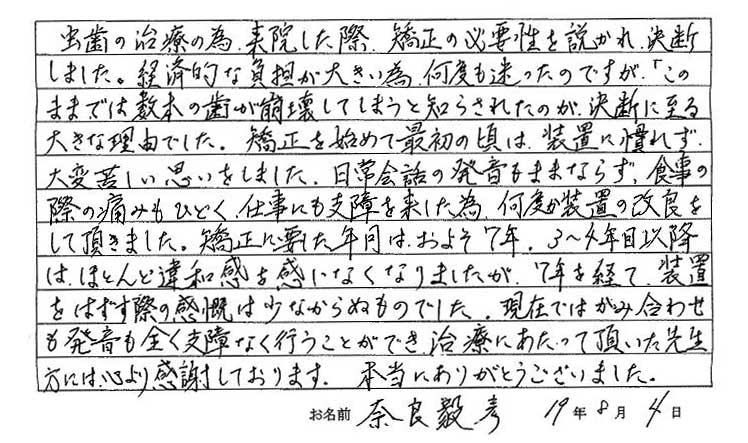 虫歯の治療の為、来院した際、矯正の必要性を説かれ、決断
しました。経済的な負担が大きい為、何度も迷ったのですが、「この
ままでは数本の歯が崩壊してしまうと知らされたのが、決断に至る
大きな理由でした。矯正を始めて最初の頃は、装置に慣れず、
大変苦しい思いをしました。日常会話の発音もままならず、食事の
際の痛みもひどく、仕事にも支障を来した為、何度か装置の改良を
して頂きました。矯正に要した年月は、およそ7年。3〜4年目以降
は、ほとんど違和感を感じなくなりましたが、7年を経て、装置
をはずす際の感慨は少なからぬものでした。現在ではかみ合わせ
も発音も全く支障なく行うことができ、治療にあたって頂いた先生
方には、心より感謝しております。本当にありがとうございました。
お名前 奈良毅彦 19年8月4日